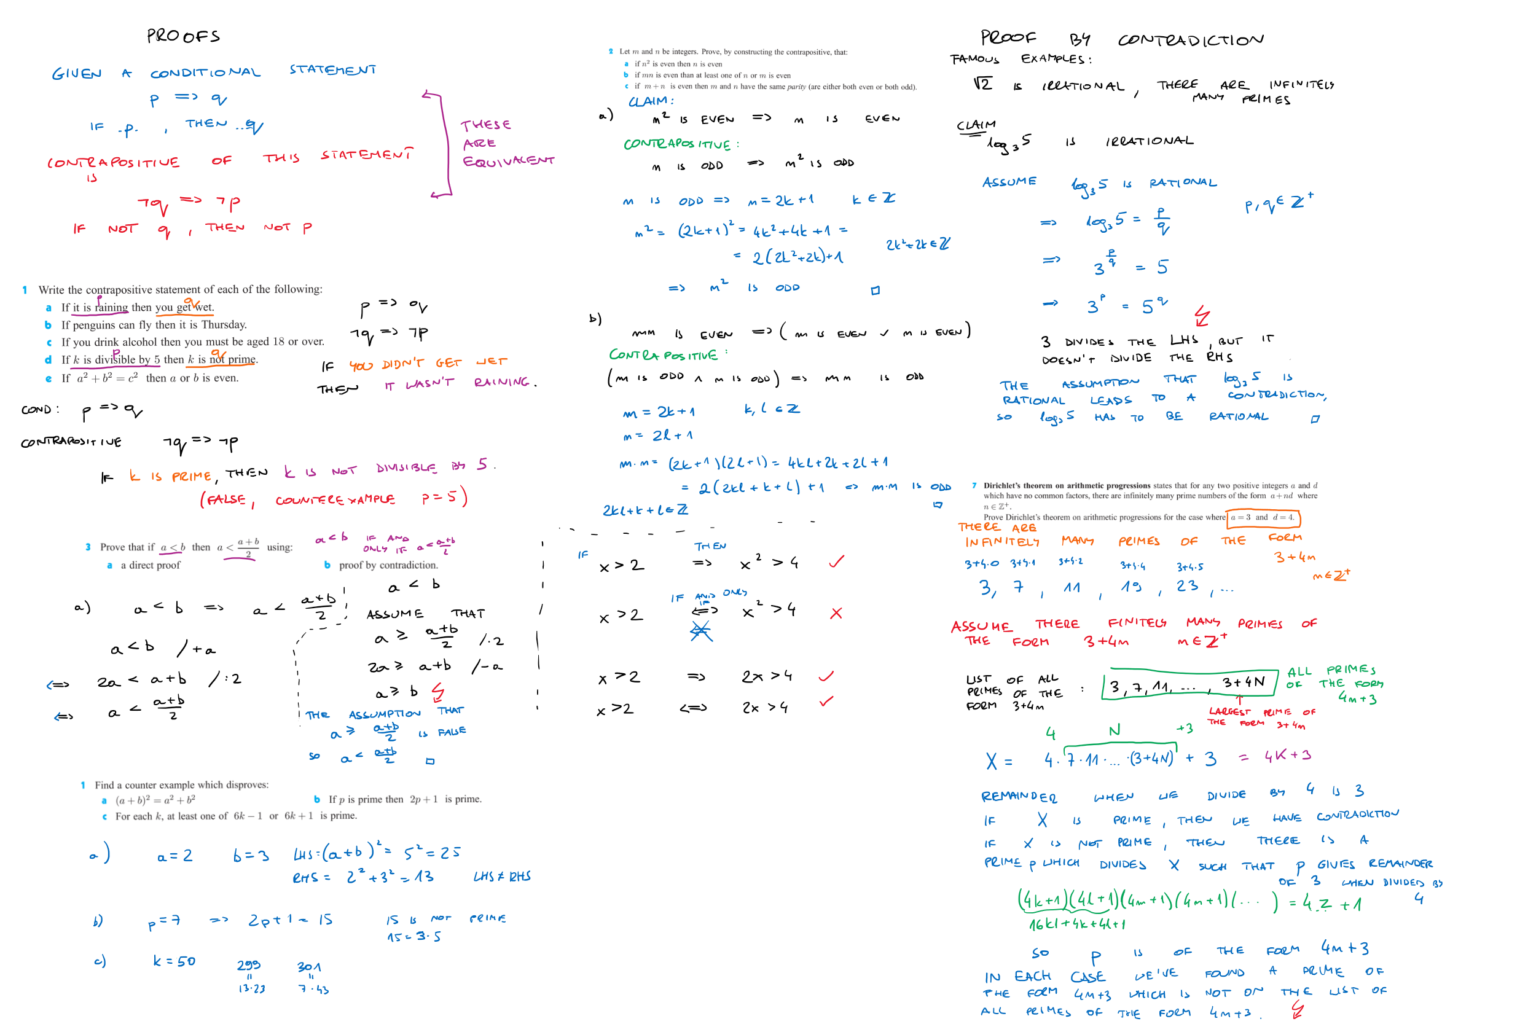 PROOFS
GIVEN A CONDITIONAL STATEMENT
p => q
IF .p. , THEN ..q
CONTRAPOSITIVE OF THIS STATEMENT
IS
¬q => ¬p
IF NOT q , THEN NOT p
THESE
ARE
EQUIVALENT
1 Write the contrapositive statement of each of the following:
a If it is raining then you get wet.
b If penguins can fly then it is Thursday.
c If you drink alcohol then you must be aged 18 or over.
d If k is divisible by 5 then k is not prime.
e If a² + b² = c² then a or b is even.
p q
p q
p => q
¬q => ¬p
IF YOU DIDN'T GET WET
THEN IT WASN'T RAINING.
COND: p => q
CONTRAPOSITIVE ¬q => ¬p
IF k IS PRIME, THEN k IS NOT DIVISIBLE BY 5.
(FALSE, COUNTEREXAMPLE P=5)
3 Prove that if a < b then a < (a+b)/2 using:
a a direct proof b proof by contradiction.
a<b IF AND
ONLY IF a < (a+b)/2
a) a < b => a < (a+b)/2
a<b /+a
<=> 2a < a+b /:2
<=> a < (a+b)/2
a < b
ASSUME THAT
a ≥ (a+b)/2 /·2
2a ≥ a+b /-a
a ≥ b
THE ASSUMPTION THAT
a ≥ (a+b)/2 IS FALSE
SO a < (a+b)/2 □
1 Find a counter example which disproves:
a (a + b)² = a² + b² b If p is prime then 2p + 1 is prime.
c For each k, at least one of 6k − 1 or 6k + 1 is prime.
a) a=2 b=3 LHS=(a+b)²= 5²=25
RHS = 2²+3²=13 LHS≠RHS
b) p=7 => 2p+1=15 15 IS NOT PRIME
15=3·5
c) k=50 299 301
= =
13·23 7·43
2 Let m and n be integers. Prove, by constructing the contrapositive, that:
a if n² is even then n is even
b if mn is even than at least one of n or m is even
c if m + n is even then m and n have the same parity (are either both even or both odd).
CLAIM:
a) n² IS EVEN => n IS EVEN
CONTRAPOSITIVE:
n IS ODD => n² IS ODD
n IS ODD => n=2k+1 k∈ℤ
n² = (2k+1)² = 4k²+4k+1 =
= 2(2k²+2k)+1 2k²+2k∈ℤ
=> n² IS ODD □
b) mn IS EVEN => (m IS EVEN ∨ n IS EVEN)
CONTRAPOSITIVE:
(m IS ODD ∧ n IS ODD) => mn IS ODD
m = 2k+1 k,l∈ℤ
n = 2l+1
m·n = (2k+1)(2l+1) = 4kl+2k+2l+1
= 2(2kl+k+l)+1 => m·n IS ODD
2kl+k+l∈ℤ □
IF THEN
x>2 => x²>4 ✓
IF AND ONLY
IF
x>2 <=> x²>4 ✗
x>2 => 2x>4 ✓
x>2 <=> 2x>4 ✓
PROOF BY CONTRADICTION
FAMOUS EXAMPLES:
√2 IS IRRATIONAL, THERE ARE INFINITELY
MANY PRIMES
CLAIM
log₃5 IS IRRATIONAL
ASSUME log₃5 IS RATIONAL
=> log₃5 = p/q p,q∈ℤ⁺
=> 3^(p/q) = 5
=> 3^p = 5^q
3 DIVIDES THE LHS, BUT IT
DOESN'T DIVIDE THE RHS
THE ASSUMPTION THAT log₃5 IS
RATIONAL LEADS TO A CONTRADICTION,
SO log₃5 HAS TO BE RATIONAL □
7 Dirichlet's theorem on arithmetic progressions states that for any two positive integers a and d
which have no common factors, there are infinitely many prime numbers of the form a + nd where
n ∈ ℤ⁺.
Prove Dirichlet's theorem on arithmetic progressions for the case where a = 3 and d = 4.
THERE ARE
INFINITELY MANY PRIMES OF THE FORM
3+4m
m∈ℤ⁺
3+4·0 3+4·1 3+4·2 3+4·4 3+4·5
3, 7, 11, 19, 23, ...
ASSUME THERE FINITELY MANY PRIMES OF
THE FORM 3+4m m∈ℤ⁺
LIST OF ALL
PRIMES OF THE
FORM 3+4m : 3, 7, 11, ... , 3+4N
ALL PRIMES
OF THE FORM
4m+3
LARGEST PRIME OF
THE FORM 3+4m
4 N +3
X = 4·7·11·...·(3+4N) + 3 = 4K+3
REMAINDER WHEN WE DIVIDE BY 4 IS 3
IF X IS PRIME, THEN WE HAVE CONTRADICTION
IF X IS NOT PRIME, THEN THERE IS A
PRIME p WHICH DIVIDES X SUCH THAT p GIVES REMAINDER
OF 3 WHEN DIVIDED BY
4
(4k+1)(4l+1)(4m+1)(4n+1)(....) = 4.Z+1
16kl+4k+4l+1
SO p IS OF THE FORM 4m+3
IN EACH CASE WE'VE FOUND A PRIME OF
THE FORM 4m+3 WHICH IS NOT ON THE LIST OF
ALL PRIMES OF THE FORM 4m+3.